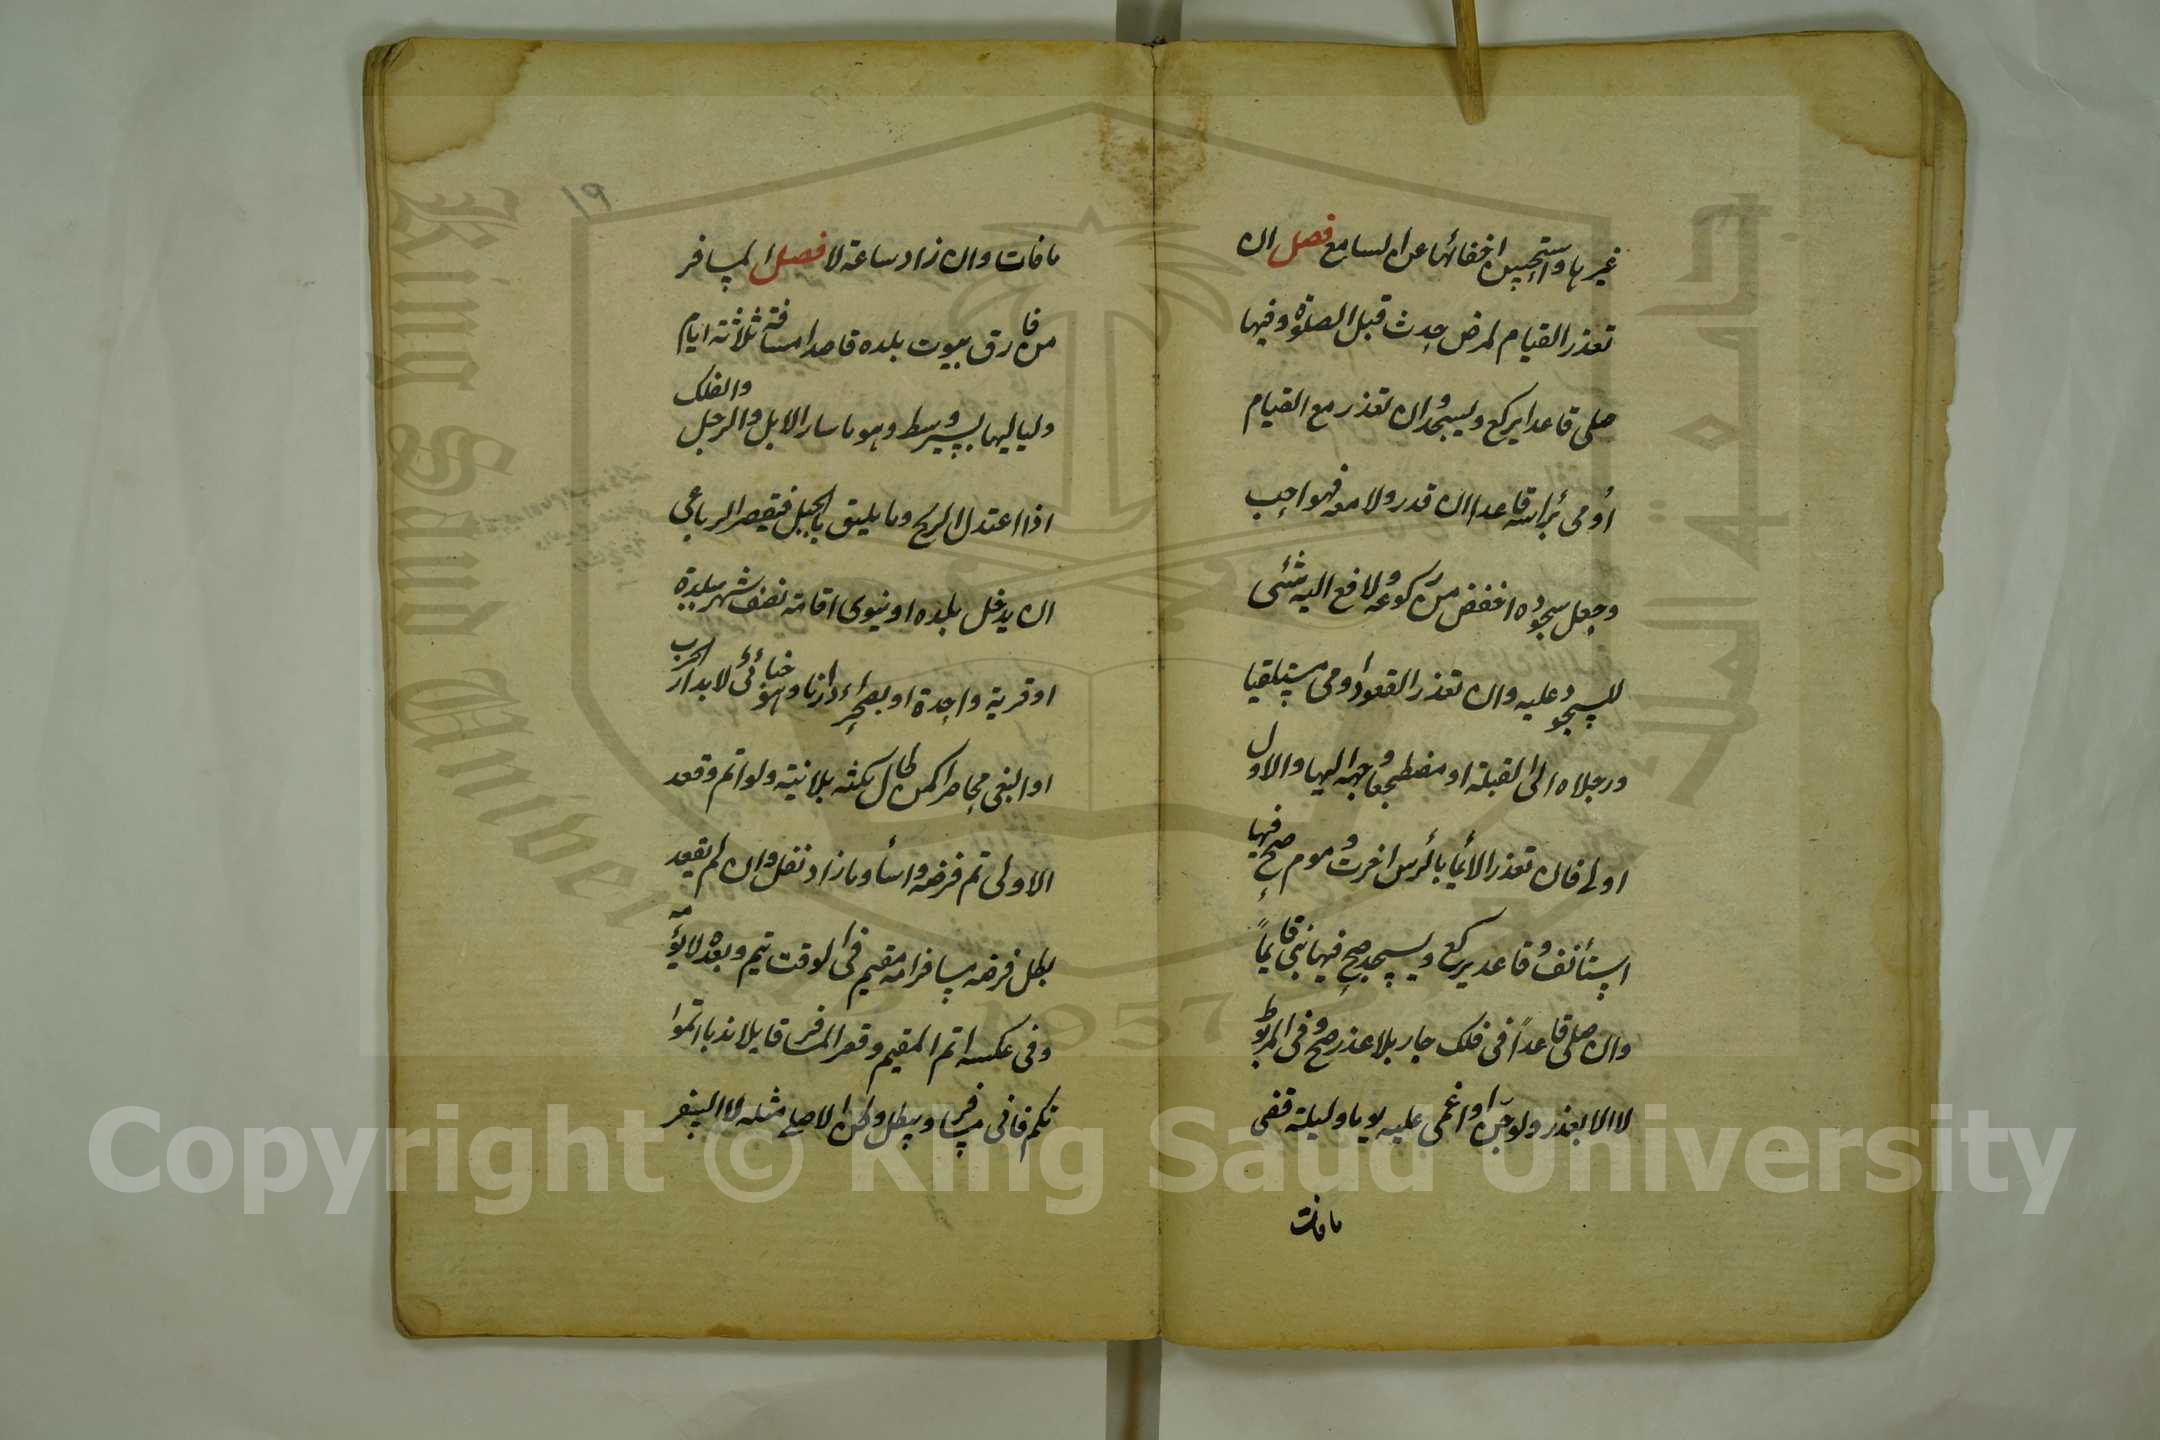 غيرها واستحسن اخفائها عن السامع فصل ان
تعذر القيام لمرض حدث قبل الصلوة وفيها
صلى قاعدا يركع ويسجد وان تعذر مع القيام
أومى برأسه قاعدا ان قدر ولا معه فهو احب
وجعل سجوده اخفض من ركوعه ولا رفع اليه شئى
للسجود عليه وان تعذر القعود اومى مستلقيا
ورجلاه الى القبلة او مضطجعا وجهه اليها والاول
اولى فان تعذر الأيما بالرأس اخرت وموم صح فيها
استأنف وقاعد يركع ويسجد صح فيها بنى قايماً
وان صلى قاعداً فى فلك جار بلا عذر صح وفى المربوط
لا الا بعذر ولو جنّ او اغمى عليه يوما وليلة قضى
مافات
١٩
مافات وان زاد ساعة لا فصل المسافر
من فارق بيوت بلده قاصدا مسافة ثلاثة ايام
ولياليها بسير وسط وهو ما سار الابل والرجل والفلك
اذا اعتدل الريح وما يليق بالجبل فيقصر الرباعى
ان يدخل بلده او ينوى اقامة نصف شهر ببلدة
او قرية واحدة او بصحراء دارنا وهو خبائئى لا بدار الحرب
او البغى محاصرا كمن طال مكثه بلانية ولو اتم وقعد
الاولى تم فرضه واسأ وما زاد نفل وان لم يقعد
بطل فرضه مسافر امه مقيم فى الوقت يتم وبعده لا يؤمه
وفى عكسه اتم المقيم وقصر المسافر قايلا ندبا اتموا
فانى مسافر ويبطل وطن الاصلى مثله لا السفر